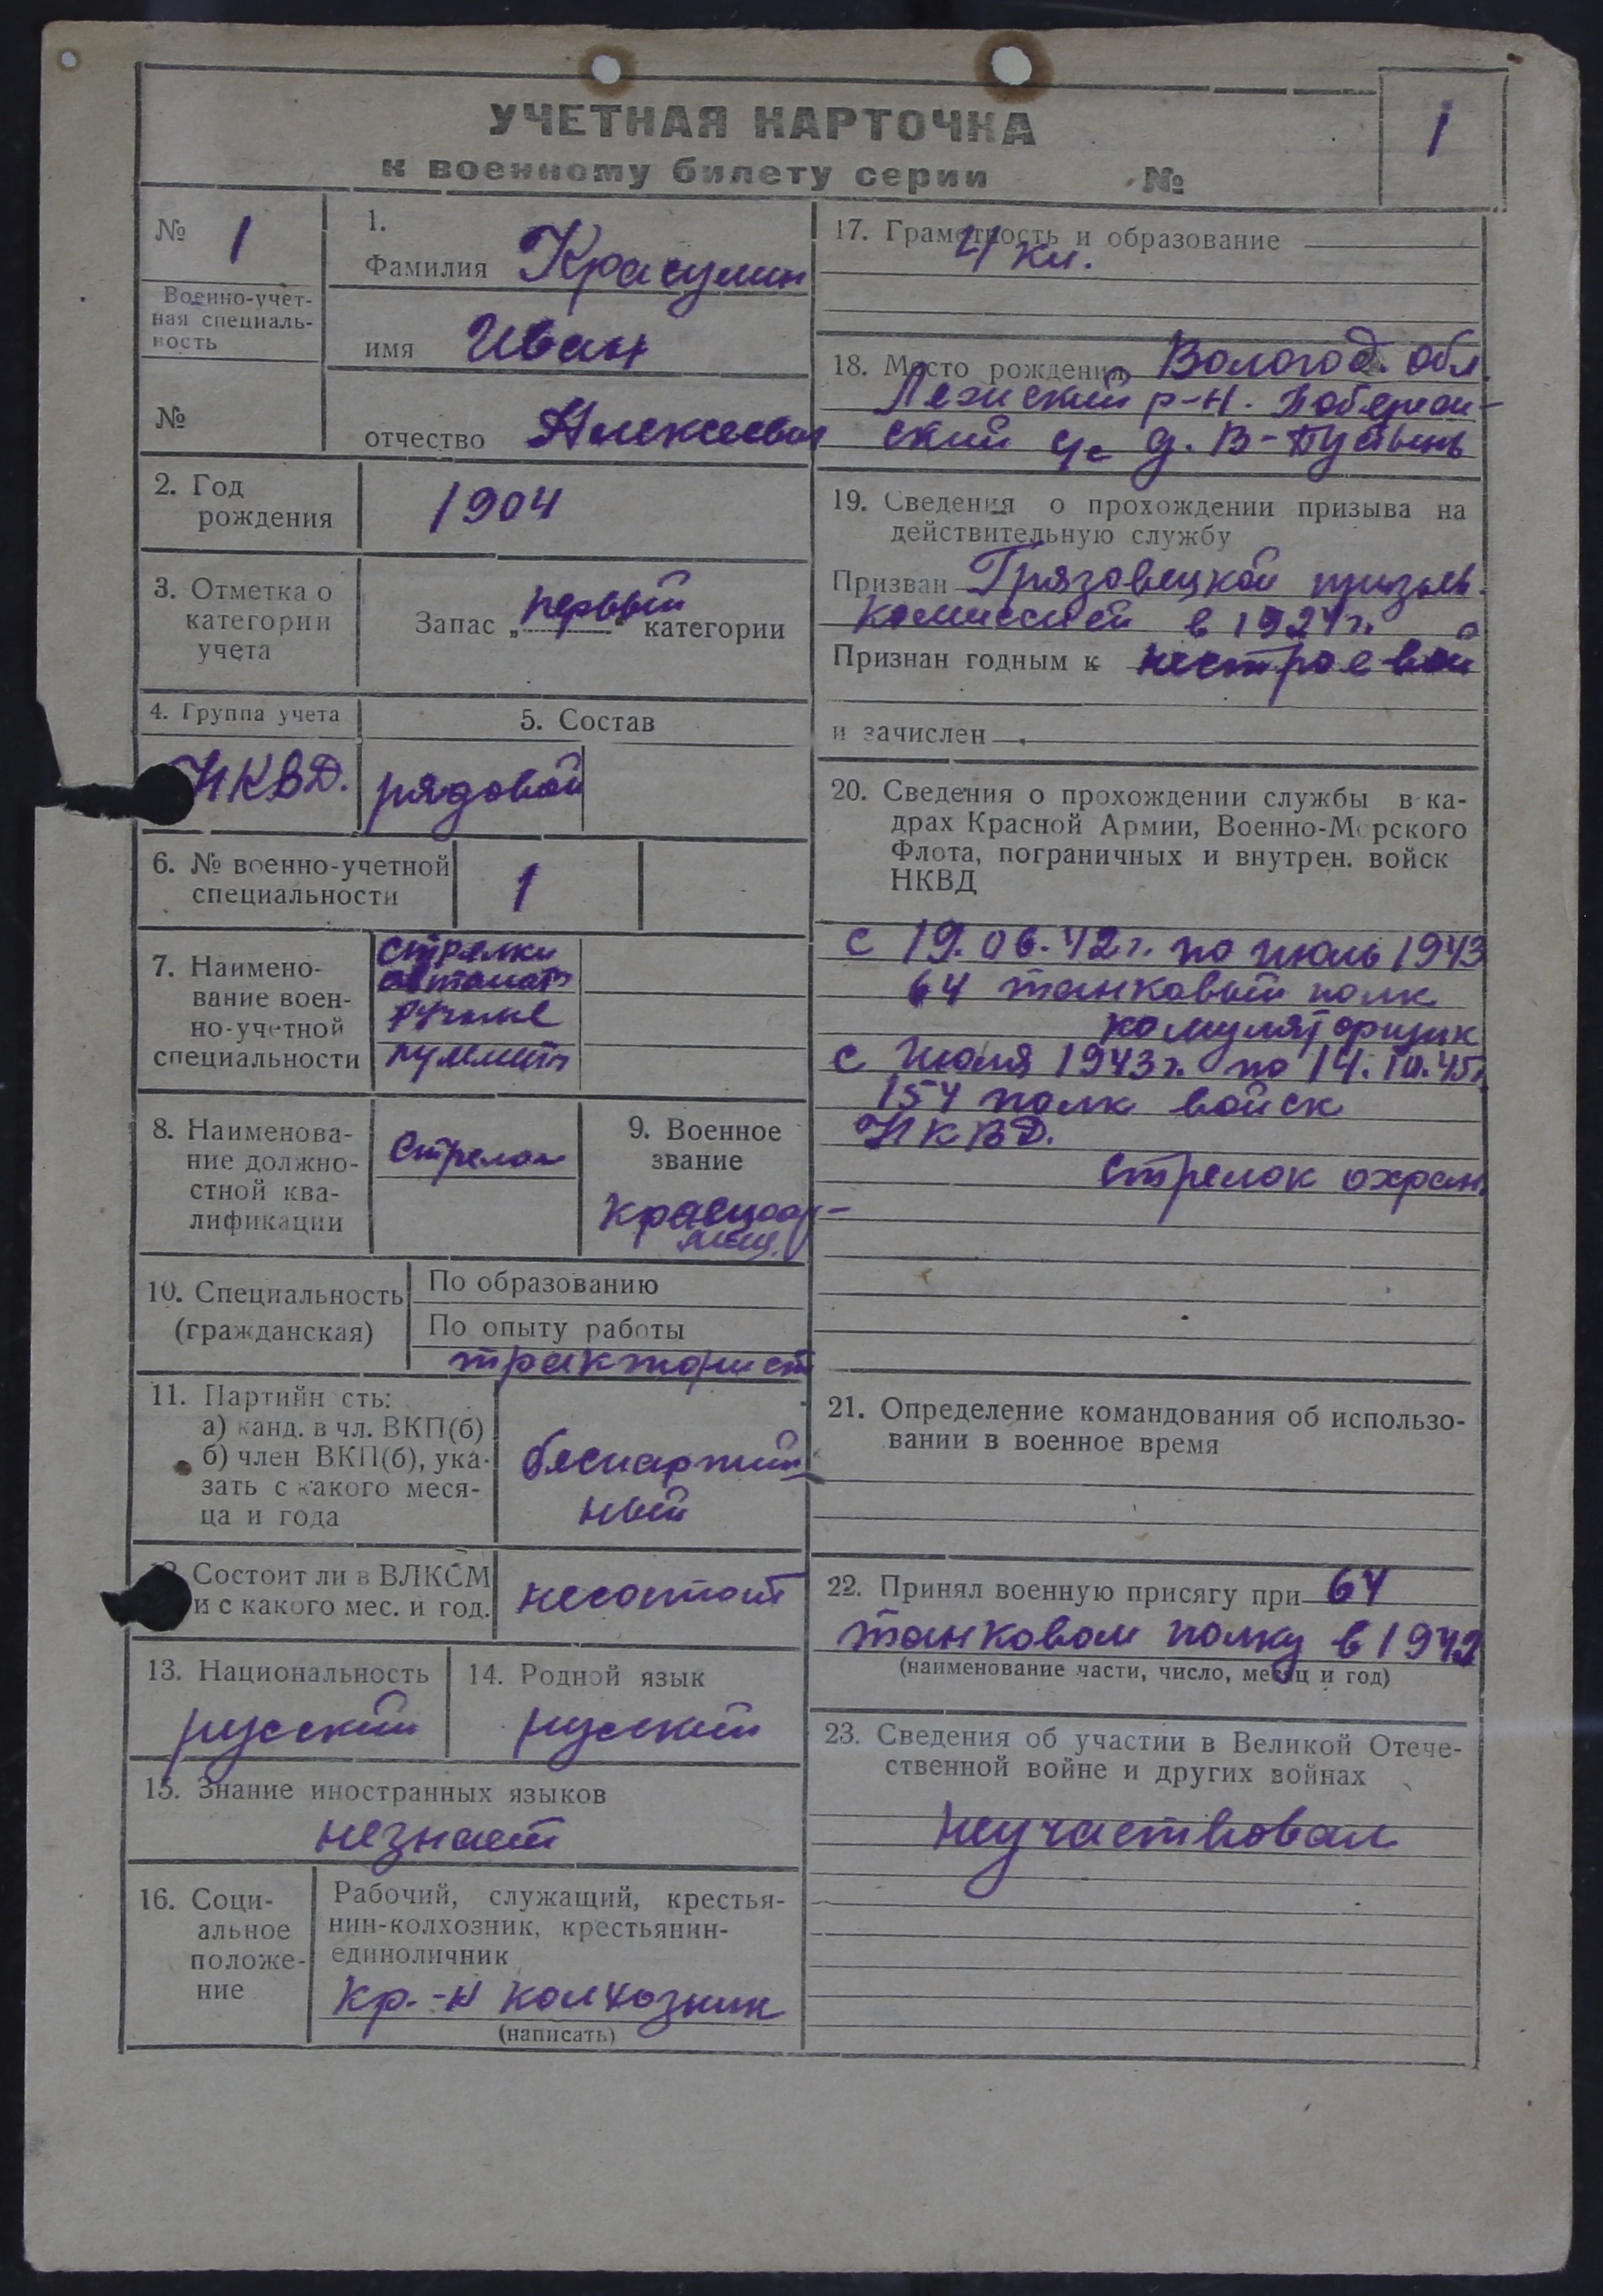 УЧЕТНАЯ КАРТОЧКА
1
к военному билету серии №
№ 1
Военно-учет-
ная специаль-
ность
№
1.
Фамилия Красулин
имя Иван
отчество Алексеевич
2. Год
рождения
1904
3. Отметка о
категории
учета
Запас „первый“ категории
4. Группа учета
НКВД.
5. Состав
рядовой
6. № военно-учетной
специальности
1
7. Наимено-
вание воен-
но-учетной
специальности
стрелки
автомат
ручные
пулемет
8. Наименова-
ние должно-
стной ква-
лификации
Стрелок
9. Военное
звание
Красноар-
меец.
10. Специальность
(гражданская)
По образованию
По опыту работы
тракторист
11. Партийн сть:
а) канд. в чл. ВКП(б)
б) член ВКП(б), ука-
зать с какого меся-
ца и года
беспартий
ный
Состоит ли в ВЛКСМ
и с какого мес. и год.
несостоит
13. Национальность
русский
14. Родной язык
русский
15. Знание иностранных языков
незнает
16. Соци-
альное
положе-
ние
Рабочий, служащий, крестья-
нин-колхозник, крестьянин-
единоличник
кр.-н колхозник
(написать)
17. Грамотность и образование
4 кл.
18. Место рождения Вологод. обл.
Лежский р-н.
ский с/с д. В-Пустынь
19. Сведения о прохождении призыва на
действительную службу
Призван Грязовецкой призыв.
комиссией в 1924 г.
Признан годным к нестроевой
и зачислен
20. Сведения о прохождении службы в ка-
драх Красной Армии, Военно-Морского
Флота, пограничных и внутрен. войск
НКВД
с 19.06.42 г. по июль 1943
64 танковый полк
комуляторщик
с июля 1943 г. по 14.10.45 г.
154 полк войск
НКВД.
стрелок охран.
21. Определение командования об использо-
вании в военное время
22. Принял военную присягу при 64
танковом полку в 1942
(наименование части, число, месяц и год)
23. Сведения об участии в Великой Отече-
ственной войне и других войнах
неучаствовал